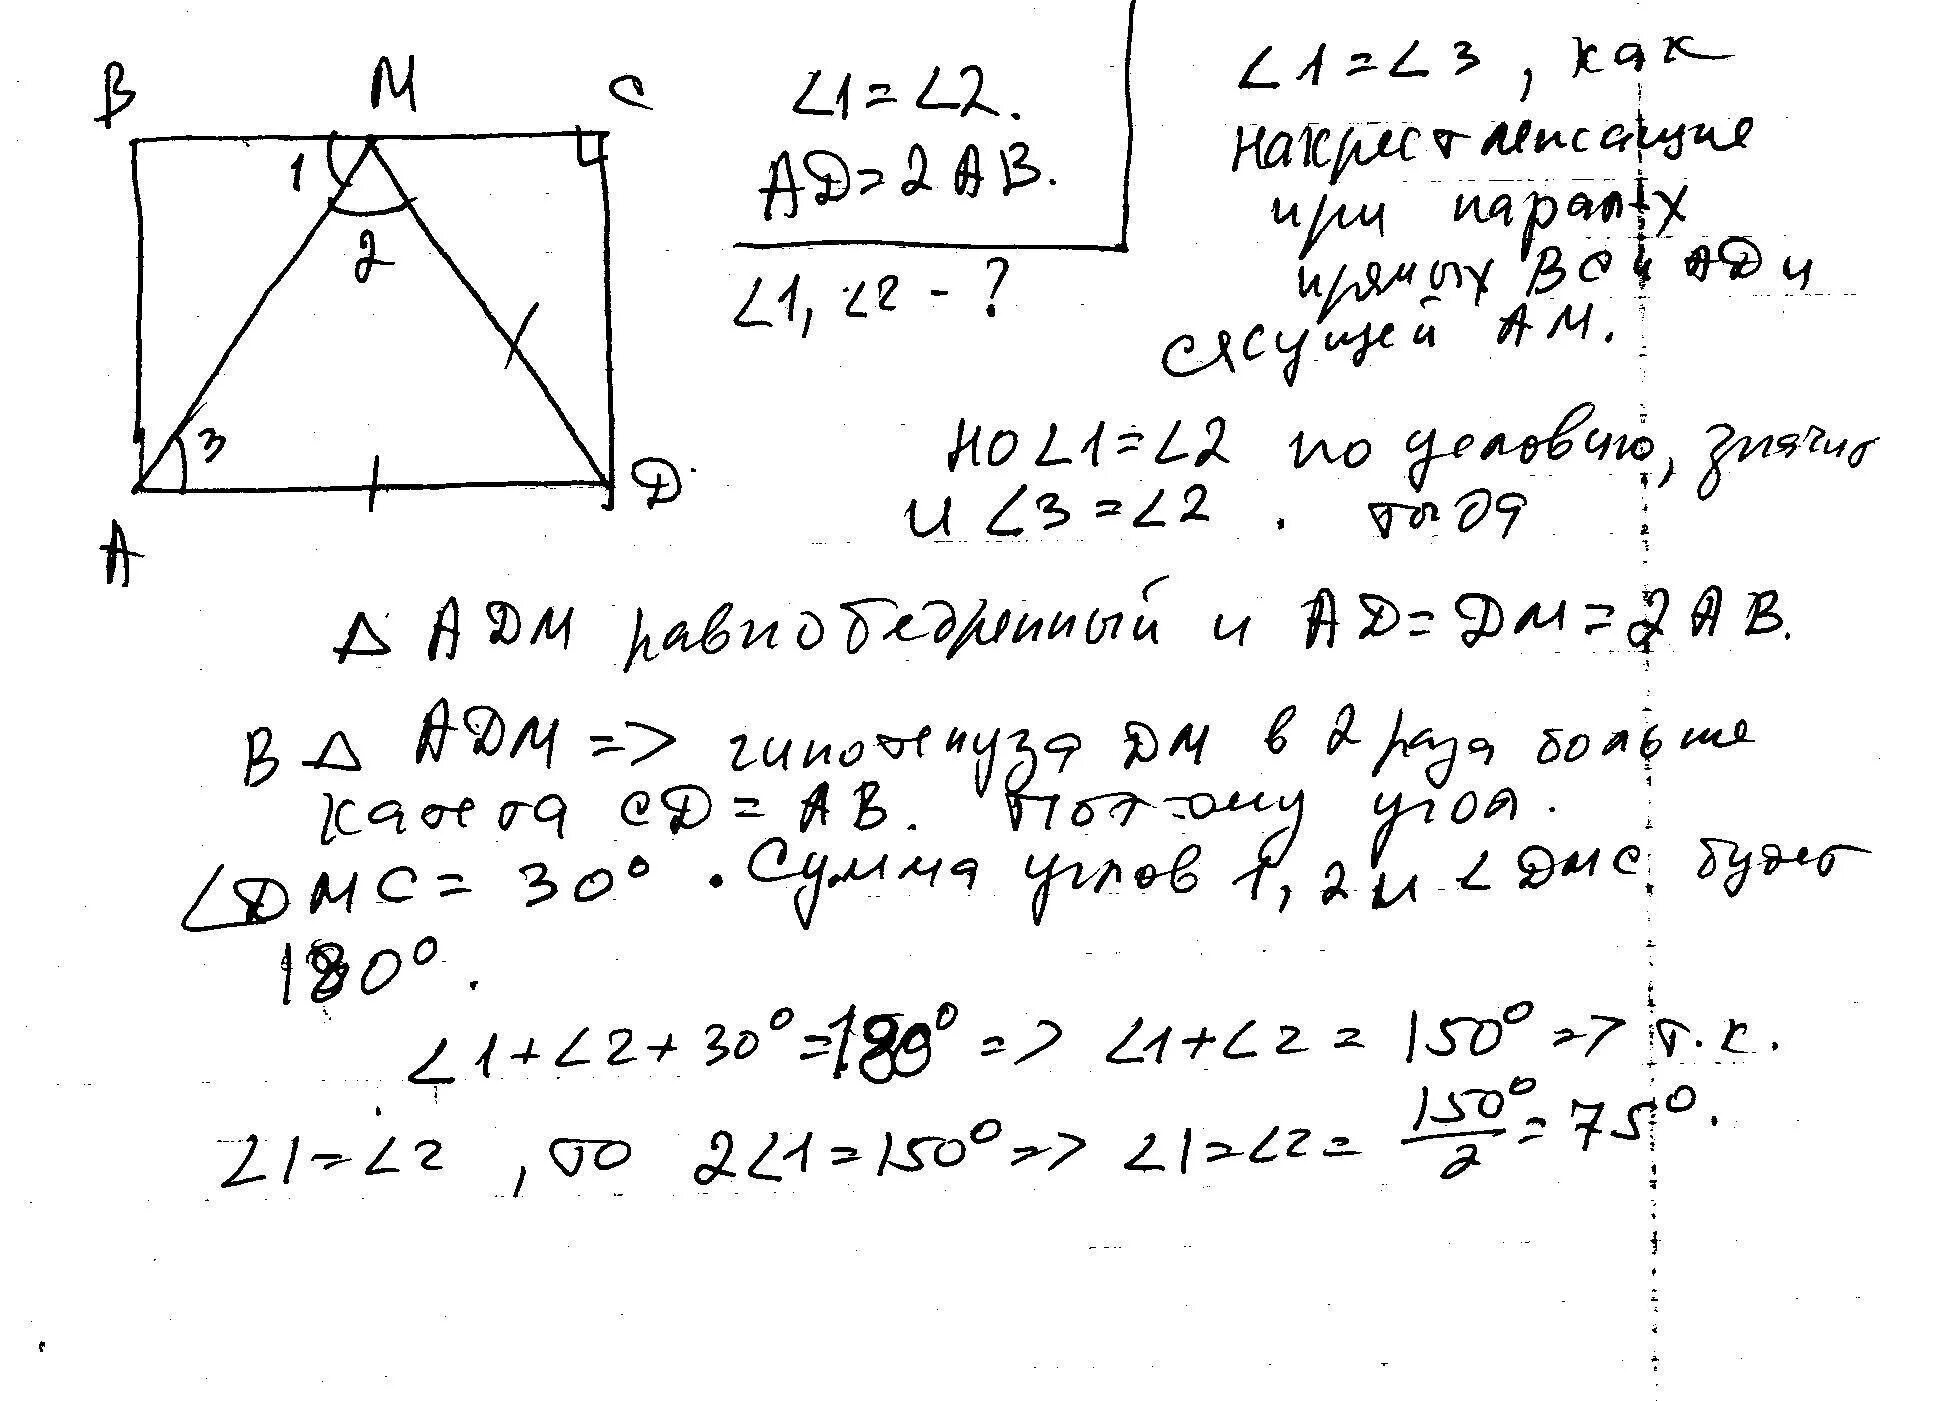 В М С
1
2
3
А Д
∠1=∠2.
АД=2АВ.
∠1, ∠2 - ?
∠1=∠3, как
накрест лежащие
при парал-х
прямых ВС и АД и
сясущей АМ.
но ∠1=∠2 по условию, значит
и ∠3=∠2. тогда
Δ АДМ равнобедренный и АД=ДМ=2АВ.
В Δ АДМ => гипотенуза ДМ в 2 раза больше
катета СД=АВ. Поэтому угол.
∠ДМС=30°. Сумма углов 1, 2 и ∠ДМС будет
180°.
∠1+∠2+30°=180° => ∠1+∠2=150° => т.к.
∠1=∠2, то 2∠1=150° => ∠1=∠2=150°/2=75°.